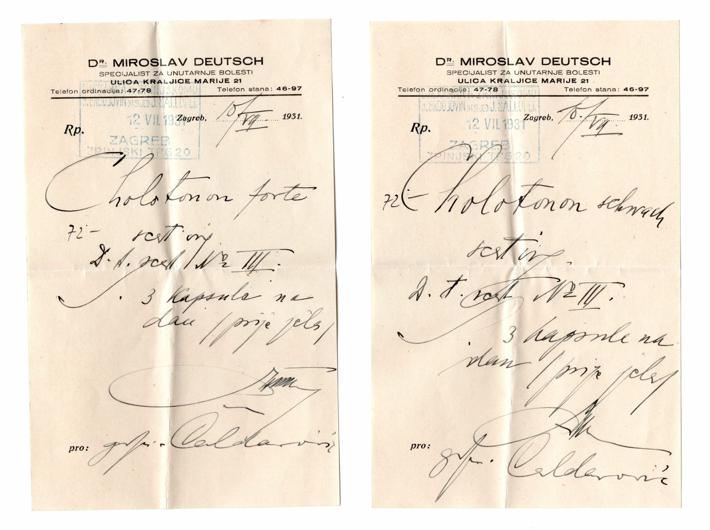 DR. MIROSLAV DEUTSCH
SPECIJALIST ZA UNUTARNJE BOLESTI
ULICA KRALJICE MARIJE 21
Telefon ordinacije: 47-78 Telefon stana: 46-97
12 VII. 1931
ZAGREB
ZRINJSKI TRG 20
Zagreb, 10/VII 1931.
Rp.
Cholotonon forte
72-
scat. orig.
D. t. scat. No III.
3 kapsule na
dan / prije jela /
pro: gospr. Caldarović
DR. MIROSLAV DEUTSCH
SPECIJALIST ZA UNUTARNJE BOLESTI
ULICA KRALJICE MARIJE 21
Telefon ordinacije: 47-78 Telefon stana: 46-97
12 VII. 1931
ZAGREB
ZRINJSKI TRG 20
Zagreb, 10/VII 1931.
Rp.
72- Cholotonon schwach
scat. orig.
D. t. scat. No III.
3 kapsule na
dan / prije jela /
pro: gospr. Caldarović